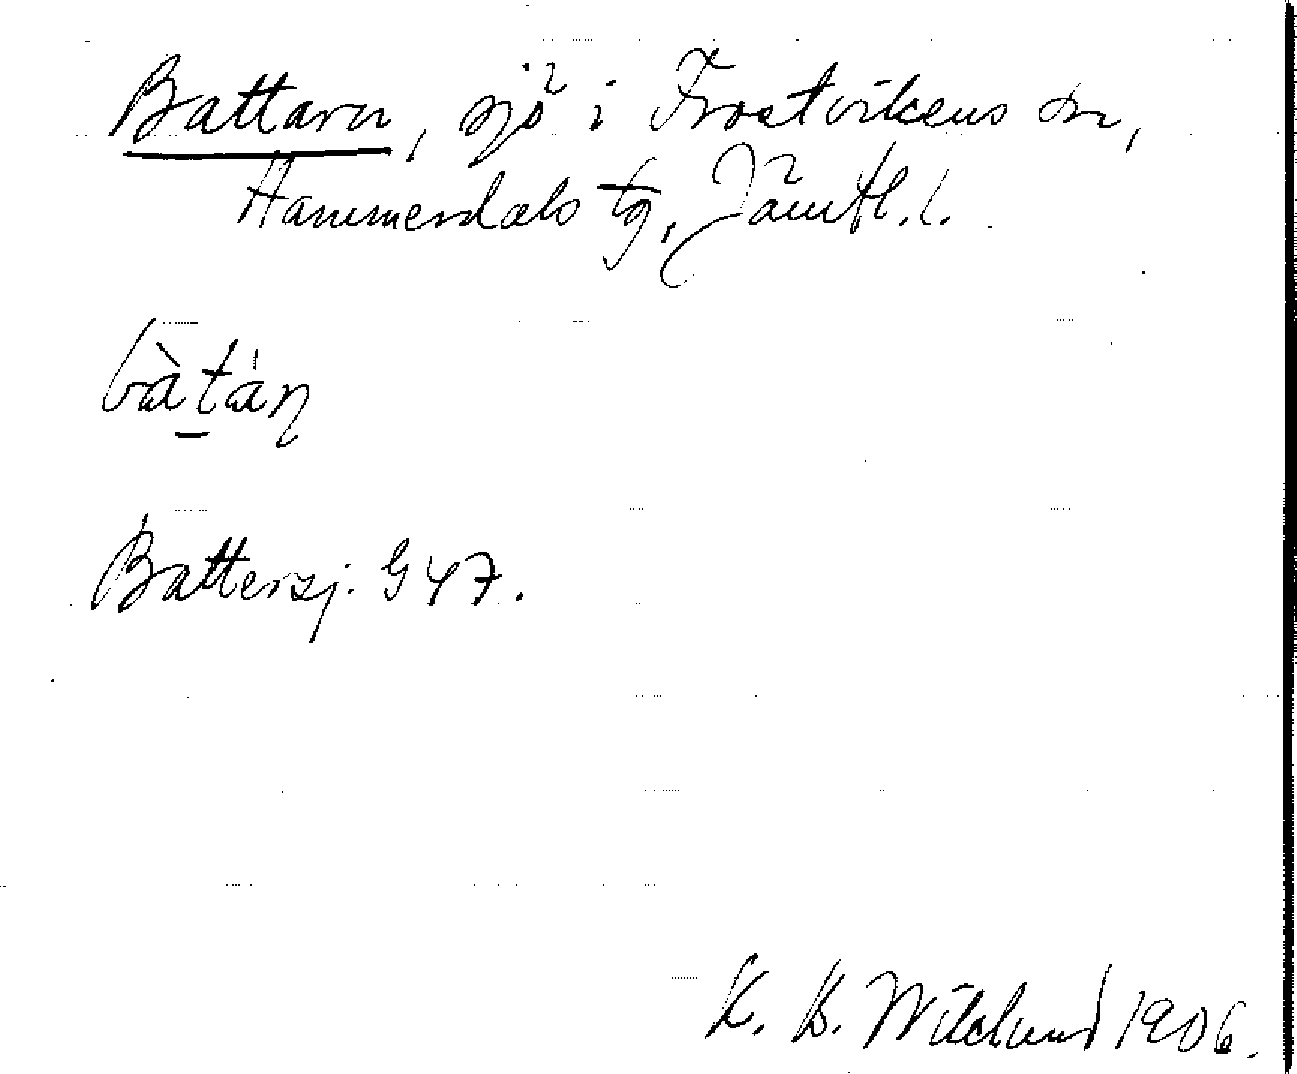 Battarn, sjö i Frostvikens sn,
Hammerdals tg, Jämtl. l.
bàtáŋ
Battersj. G 47.
K. B. Wiklund 1906.